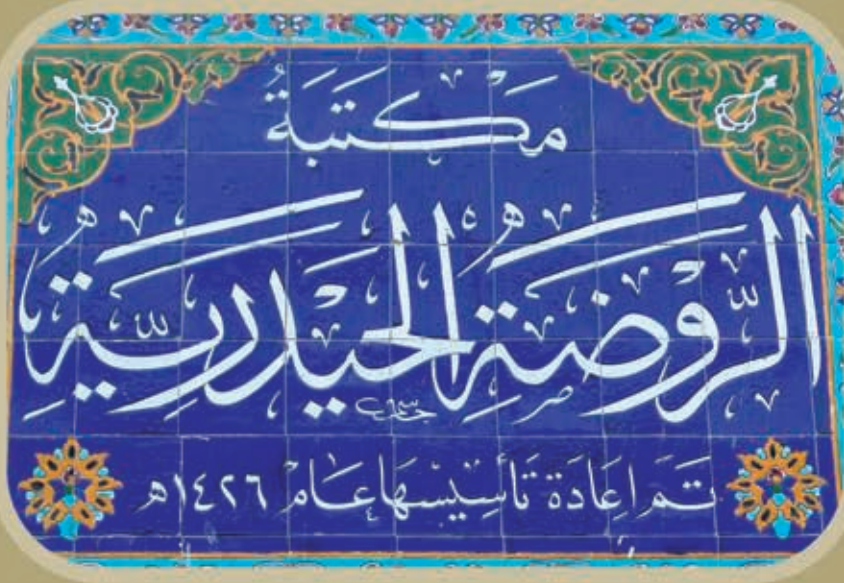 مَكتَبَةُ
الرَّوْضَةِ الحَيْدَرِيَّةِ
تَمَ اِعَادَة تَأسِيسهَا عَامْ ١٤٢٦هـ